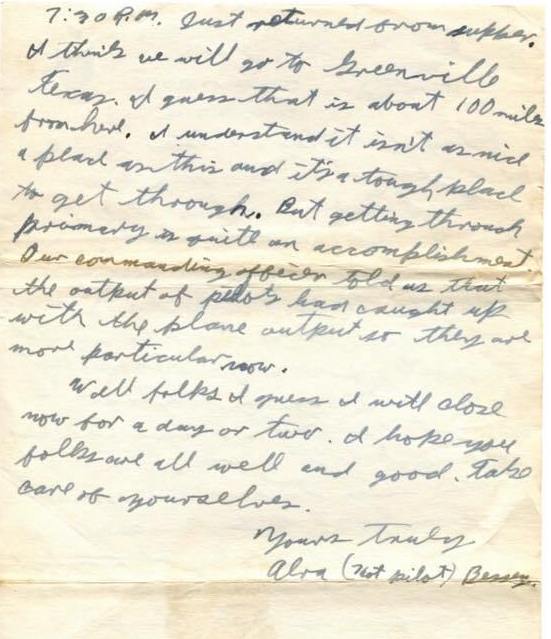 7:30 P.M. Just returned from supper.
I think we will go to Greenville
Texas. I guess that is about 100 miles
from here. I understand it isn't as nice
a place as this and it's a tough place
to get through. But getting through
primary is quite an accomplishment.
Our commanding officer told us that
the output of pilots had caught up
with the plane output so they are
more particular now.
Well folks I guess I will close
now for a day or two. I hope you
folks are all well and good. Take
care of yourselves.
Yours Truly
Alva (not pilot) Bessey.